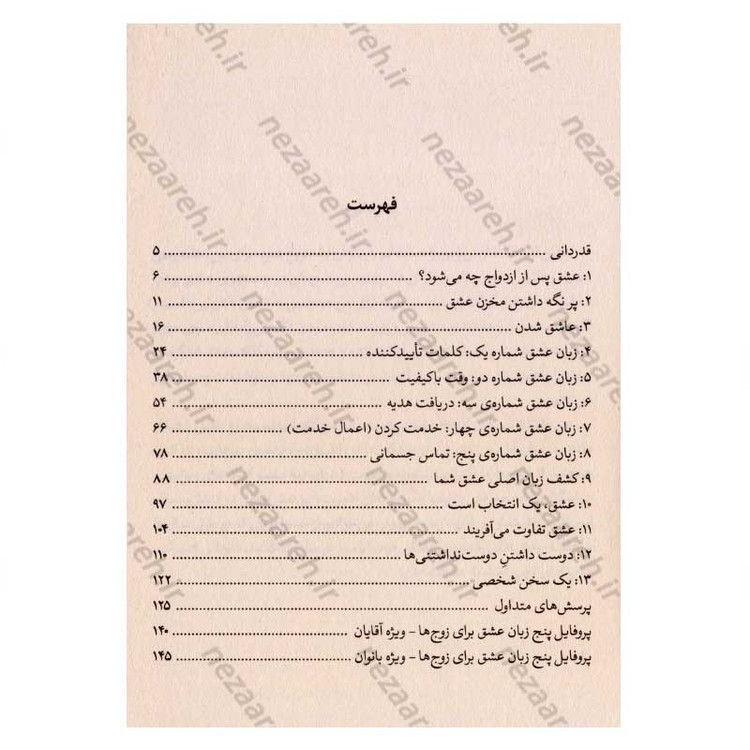 فهرست
قدردانی ........ ۵
۱: عشق پس از ازدواج چه می‌شود؟ ........ ۶
۲: پر نگه داشتن مخزن عشق ........ ۱۱
۳: عاشق شدن ........ ۱۶
۴: زبان عشق شماره یک: کلمات تأییدکننده ........ ۲۴
۵: زبان عشق شماره دو: وقت باکیفیت ........ ۳۸
۶: زبان عشق شماره‌ی سه: دریافت هدیه ........ ۵۴
۷: زبان عشق شماره‌ی چهار: خدمت کردن (اعمال خدمت) ........ ۶۶
۸: زبان عشق شماره‌ی پنج: تماس جسمانی ........ ۷۸
۹: کشف زبان اصلی عشق شما ........ ۸۸
۱۰: عشق، یک انتخاب است ........ ۹۷
۱۱: عشق تفاوت می‌آفریند ........ ۱۰۴
۱۲: دوست داشتنِ دوست‌نداشتنی‌ها ........ ۱۱۰
۱۳: یک سخن شخصی ........ ۱۲۲
پرسش‌های متداول ........ ۱۲۵
پروفایل پنج زبان عشق برای زوج‌ها - ویژه آقایان ........ ۱۴۰
پروفایل پنج زبان عشق برای زوج‌ها - ویژه بانوان ........ ۱۴۵
nezaareh.ir